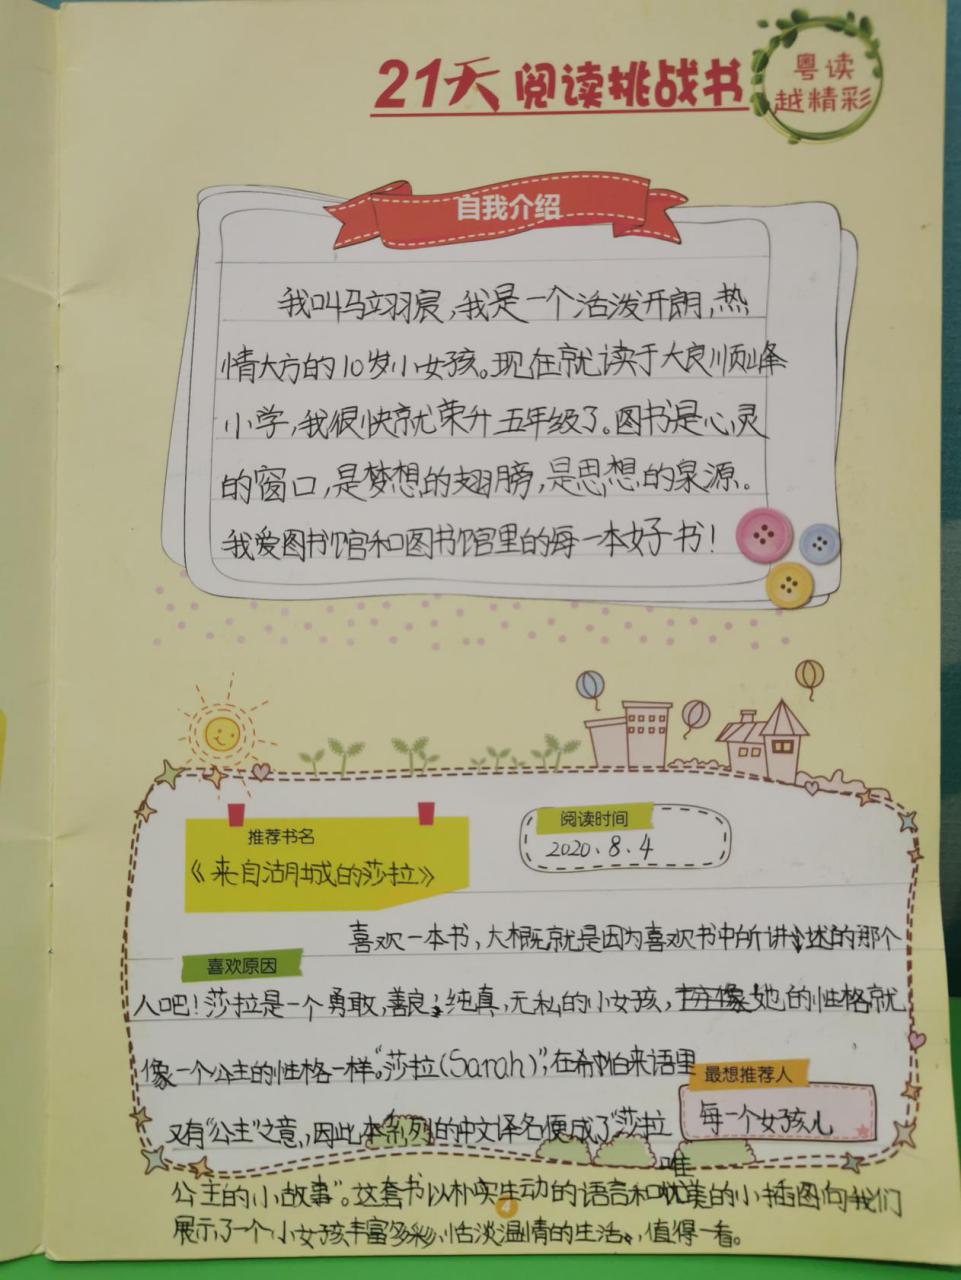 21天阅读挑战书
粤读
越精彩
自我介绍
我叫马翊羽宸,我是一个活泼开朗,热
情大方的10岁小女孩。现在就读于大良顺峰
小学,我很快就荣升五年级了。图书是心灵
的窗口,是梦想的翅膀,是思想的泉源。
我爱图书馆和图书馆里的每一本好书!
推荐书名
《来自湖城的莎拉》
阅读时间
2020.8.4
喜欢一本书,大概就是因为喜欢书中所讲述的那个
喜欢原因
人吧!莎拉是一个勇敢,善良,纯真,无私的小女孩,她的性格就
像一个公主的性格一样。"莎拉(Sarah)",在希伯来语里
最想推荐人
每一个女孩儿
又有"公主"之意,因此本系列的中文译名便成了"莎拉
公主的小故事"。这套书以朴实生动的语言和唯美的小插图向我们
展示了一个小女孩丰富多彩,恬淡温情的生活,值得一看。
4